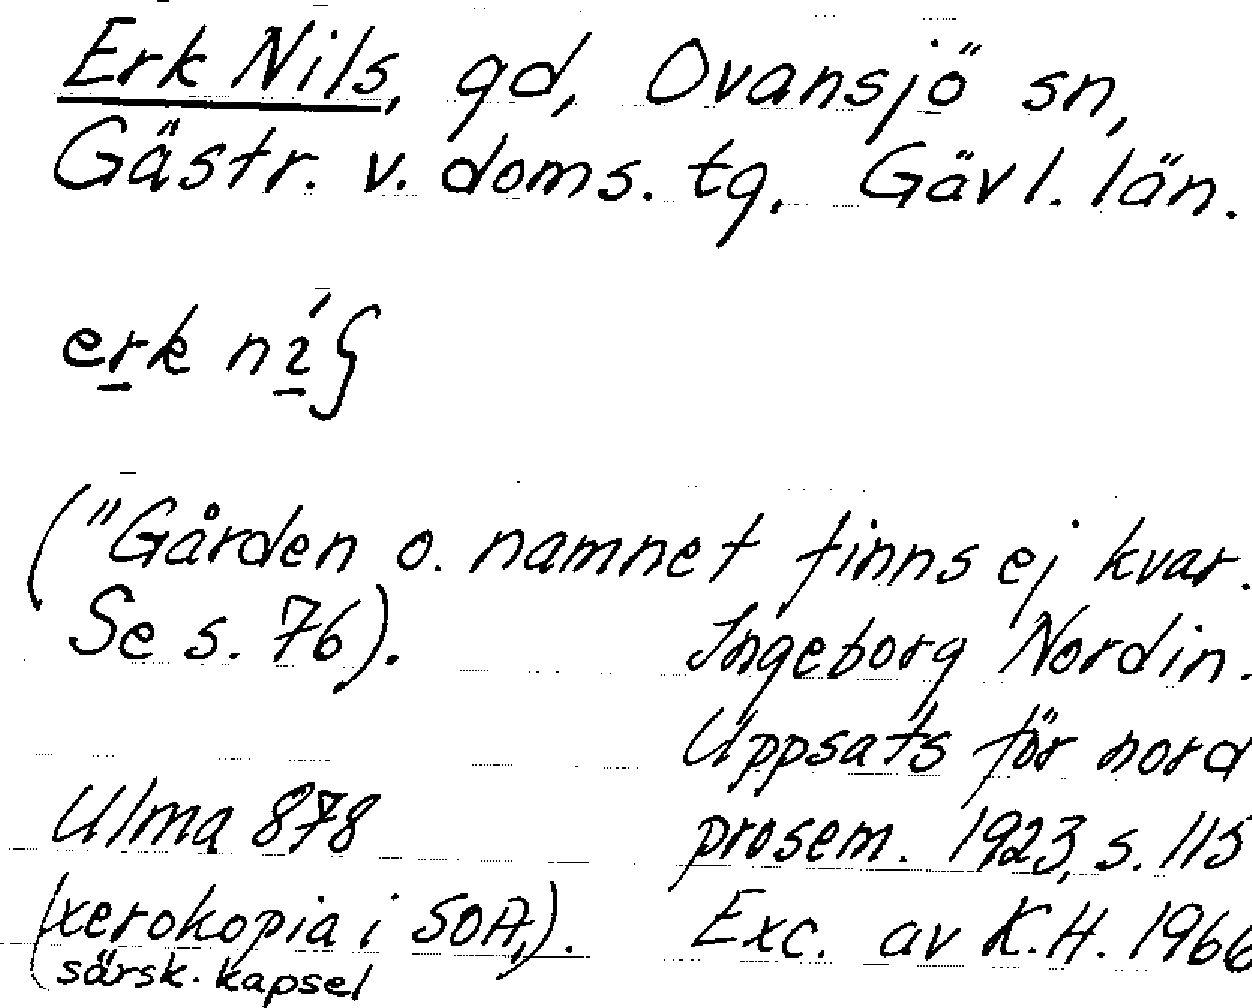 Erk Nils, gd, Ovansjö sn,
Gästr. v. doms. tg, Gävl. län.
erk
("Gården o. namnet finns ej kvar.
Se s. 76).
Ingeborg Nordin.
Uppsats för nord
prosem. 1923, s. 115
Exc. av K.H. 1966
Ulma 878
(xerokopia i SOA,).
särsk. kapsel